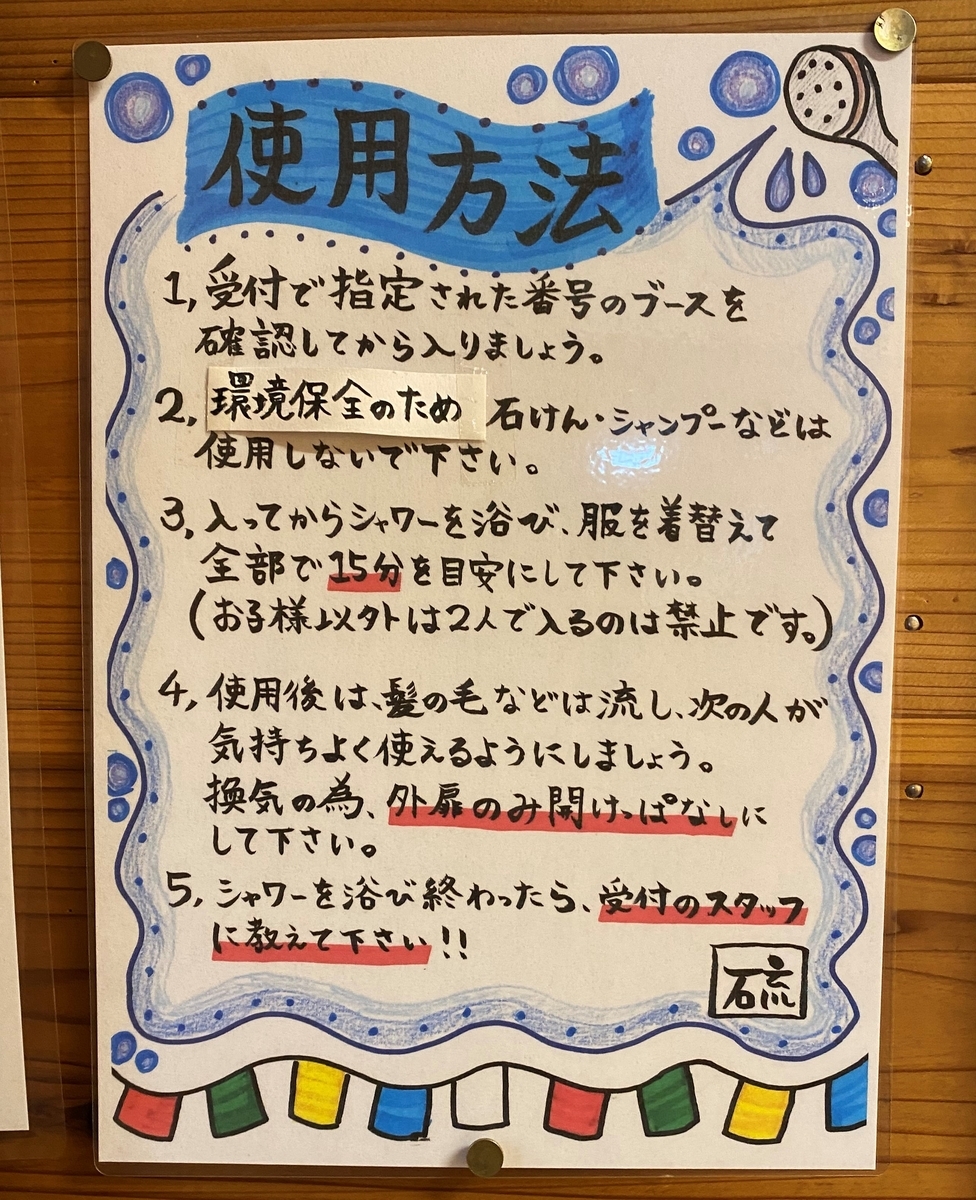 使用方法
1, 受付で指定された番号のブースを
確認してから入りましょう。
2, 環境保全のため 石けん・シャンプーなどは
使用しないで下さい。
3, 入ってからシャワーを浴び、服を着替えて
全部で15分を目安にして下さい。
(お子様以外は2人で入るのは禁止です。)
4, 使用後は、髪の毛などは流し、次の人が
気持ちよく使えるようにしましょう。
換気の為、外扉のみ開けっぱなしに
して下さい。
5, シャワーを浴び終わったら、受付のスタッフ
に教えて下さい!!
硫